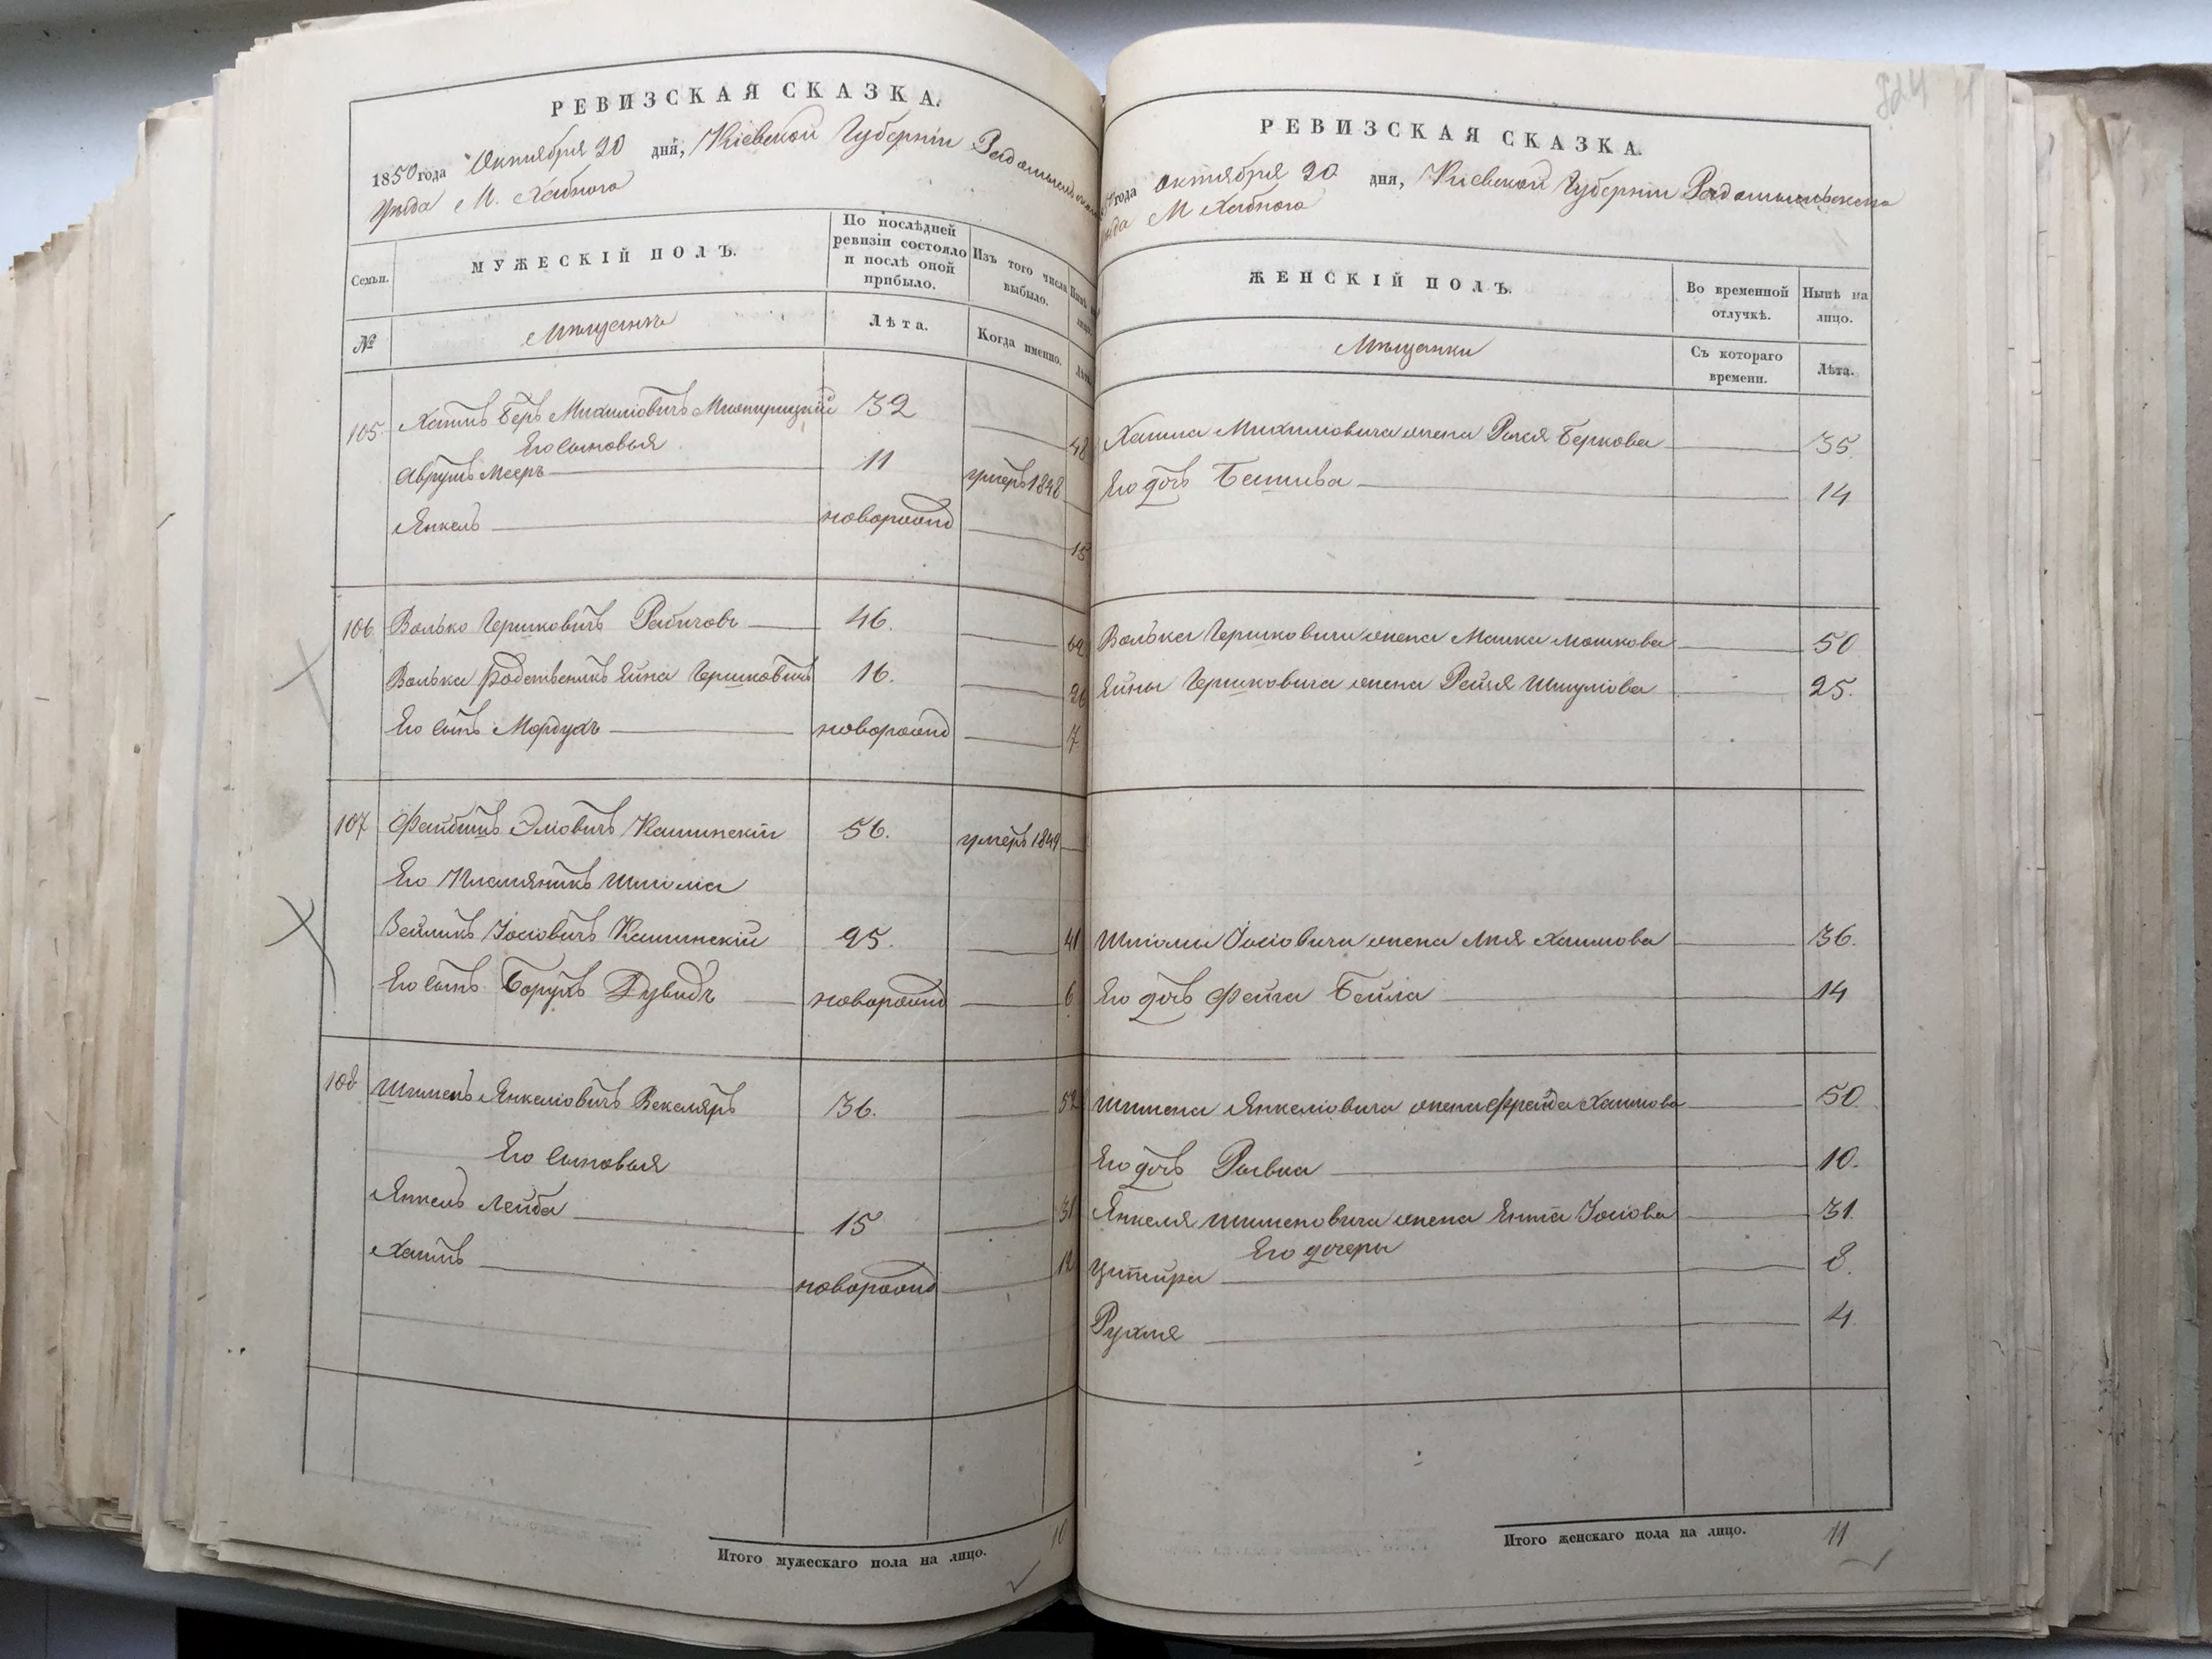 РЕВИЗСКАЯ СКАЗКА.
1850 года Октября 20 дня, Кіевской Губерніи Радомысльского
Уѣзда М. Хабного
Семьи.
МУЖЕСКІЙ ПОЛЪ.
По послѣдней ревизіи состояло и послѣ оной прибыло.
Изъ того числа выбыло.
№
Мѣщанъ
Лѣта.
Когда именно.
105. Хаимъ Беръ Михиліовичъ 32 48
Его сыновья
Аврумъ Мееръ 11 умеръ 1848
Янкель новорожд 15
106 Волько Гершковичъ Рабичовъ 46. 62
Волька родственикъ Ейна Гершковичъ 16. 26
Его сынъ Мордухъ новорожд 7
107 Файбишъ Эліовичъ Кашинскій 56. умеръ 1849
Его Племяникъ Шліома
Зейликъ Іосіовичъ Кашинскій 25. 41
Его сынъ Борухъ Дувидъ новорожд 6
108 Шименъ Янкеліовичъ Векслярь 36. 52
Его сыновья
Янкель Лейба 15 31
Хаимъ новорожд 12
Итого мужескаго пола на лицо. 10
824
РЕВИЗСКАЯ СКАЗКА.
года октября 20 дня, Кіевской Губерніи Радомысльского
М Хабного
ЖЕНСКІЙ ПОЛЪ.
Во временной отлучкѣ.
Нынѣ на лицо.
Мѣщанки
Съ котораго времени.
Лѣта.
Хаима Михиліовича жена Рися Беркова 35.
Его дочь Башива 14
Волька Гершковича жена Малка Мошкова 50
Ейны Гершковича жена Рейзя Шмуліова 25.
Шліомы Іосіовича жена Лия Хаимова 36.
Его дочь Фейга Бейла 14
Шимена Янкеліовича жена Фрейда Хаимова 50
Его дочь Ривка 10.
Янкеля Шименовича жена Ента Іосіова 31.
Его дочери
Ципойра 8.
Рухля 4.
Итого женскаго пола на лицо. 11